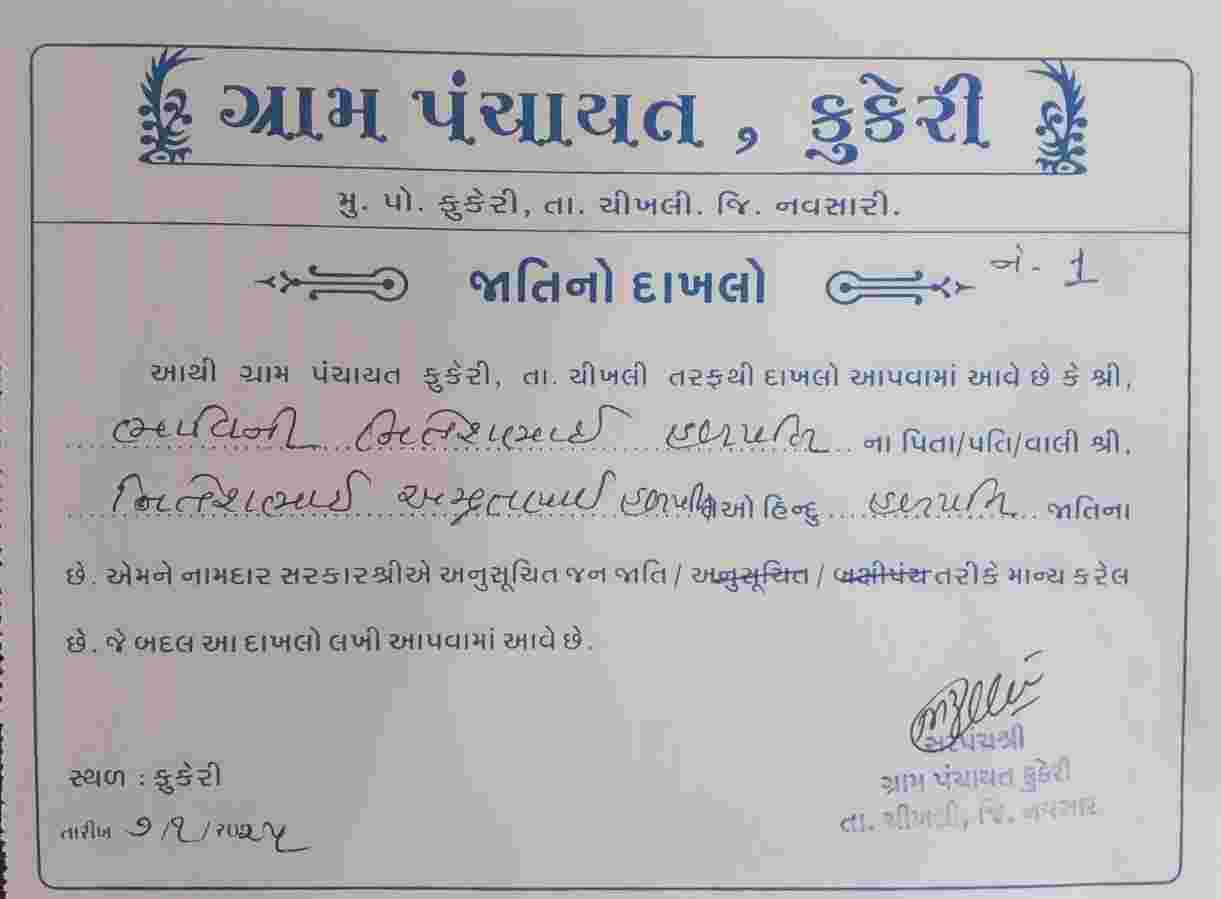 ગ્રામ પંચાયત , કુકેરી
મુ. પો. કુકેરી, તા. ચીખલી. જિ. નવસારી.
જાતિનો દાખલો
નં. 1
આથી ગ્રામ પંચાયત કુકેરી, તા. ચીખલી તરફથી દાખલો આપવામાં આવે છે કે શ્રી,
ભાવિની મિતેશભાઈ હળપતિ ના પિતા/પતિ/વાલી શ્રી.
મિતેશભાઈ અમૃતભાઈ હળપતિ તેઓ હિન્દુ હળપતિ જાતિના
છે. એમને નામદાર સરકારશ્રીએ અનુસૂચિત જન જાતિ / અનુસૂચિત / બક્ષીપંચ તરીકે માન્ય કરેલ
છે. જે બદલ આ દાખલો લખી આપવામાં આવે છે.
સરપંચશ્રી
ગ્રામ પંચાયત કુકેરી
તા. ચીખલી, જિ. નવસારી
સ્થળ : કુકેરી
તારીખ ૭/૧/૨૦૨૫